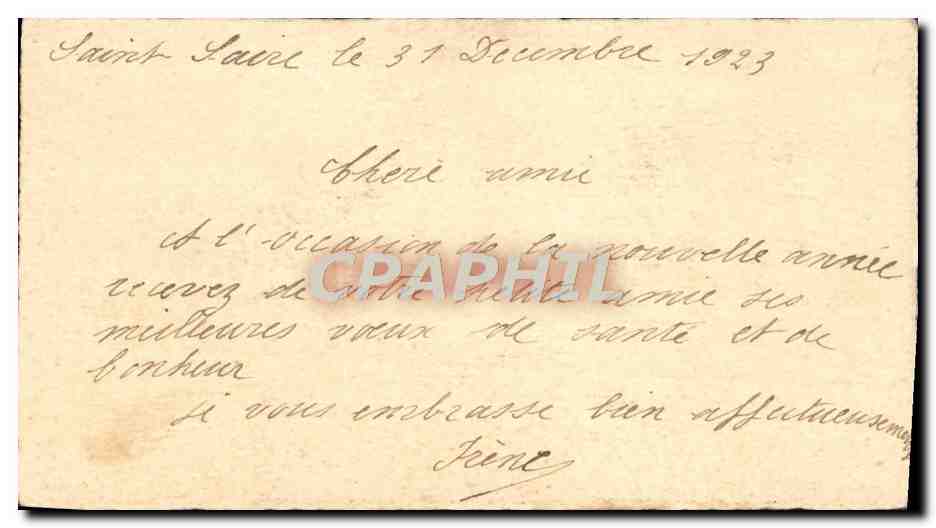 Saint Saire le 31 Decembre 1923
Chere amie
A l'occasion de la nouvelle année
recevez de votre petite amie ses
meilleures vœux de santé et de
bonheur
je vous embrasse bien affectueusement
Irène
CPAPHIL